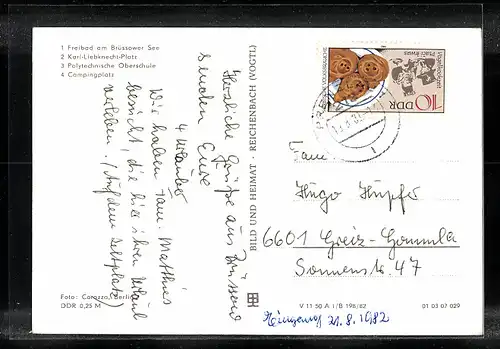 1 Freibad am Brüssower See
2 Karl-Liebknecht-Platz
3 Polytechnische Oberschule
4 Campingplatz
Herzliche Grüße aus Brüssow
senden Eure
4 Urlauber
Wir haben Fam. Matthies
besucht, die hier ihren Urlaub
verleben. (Auf dem Zeltplatz)
Foto: Carozza, Berlin
DDR 0,25 M
BILD UND HEIMAT · REICHENBACH (VOGTL)
10
DDR
Fam.
Hugo Hüpfer
6601 Greiz-Gommla
Sonnenstr. 47
V 11 50 A 1/B 198/82
01 03 07 029
21.8.1982